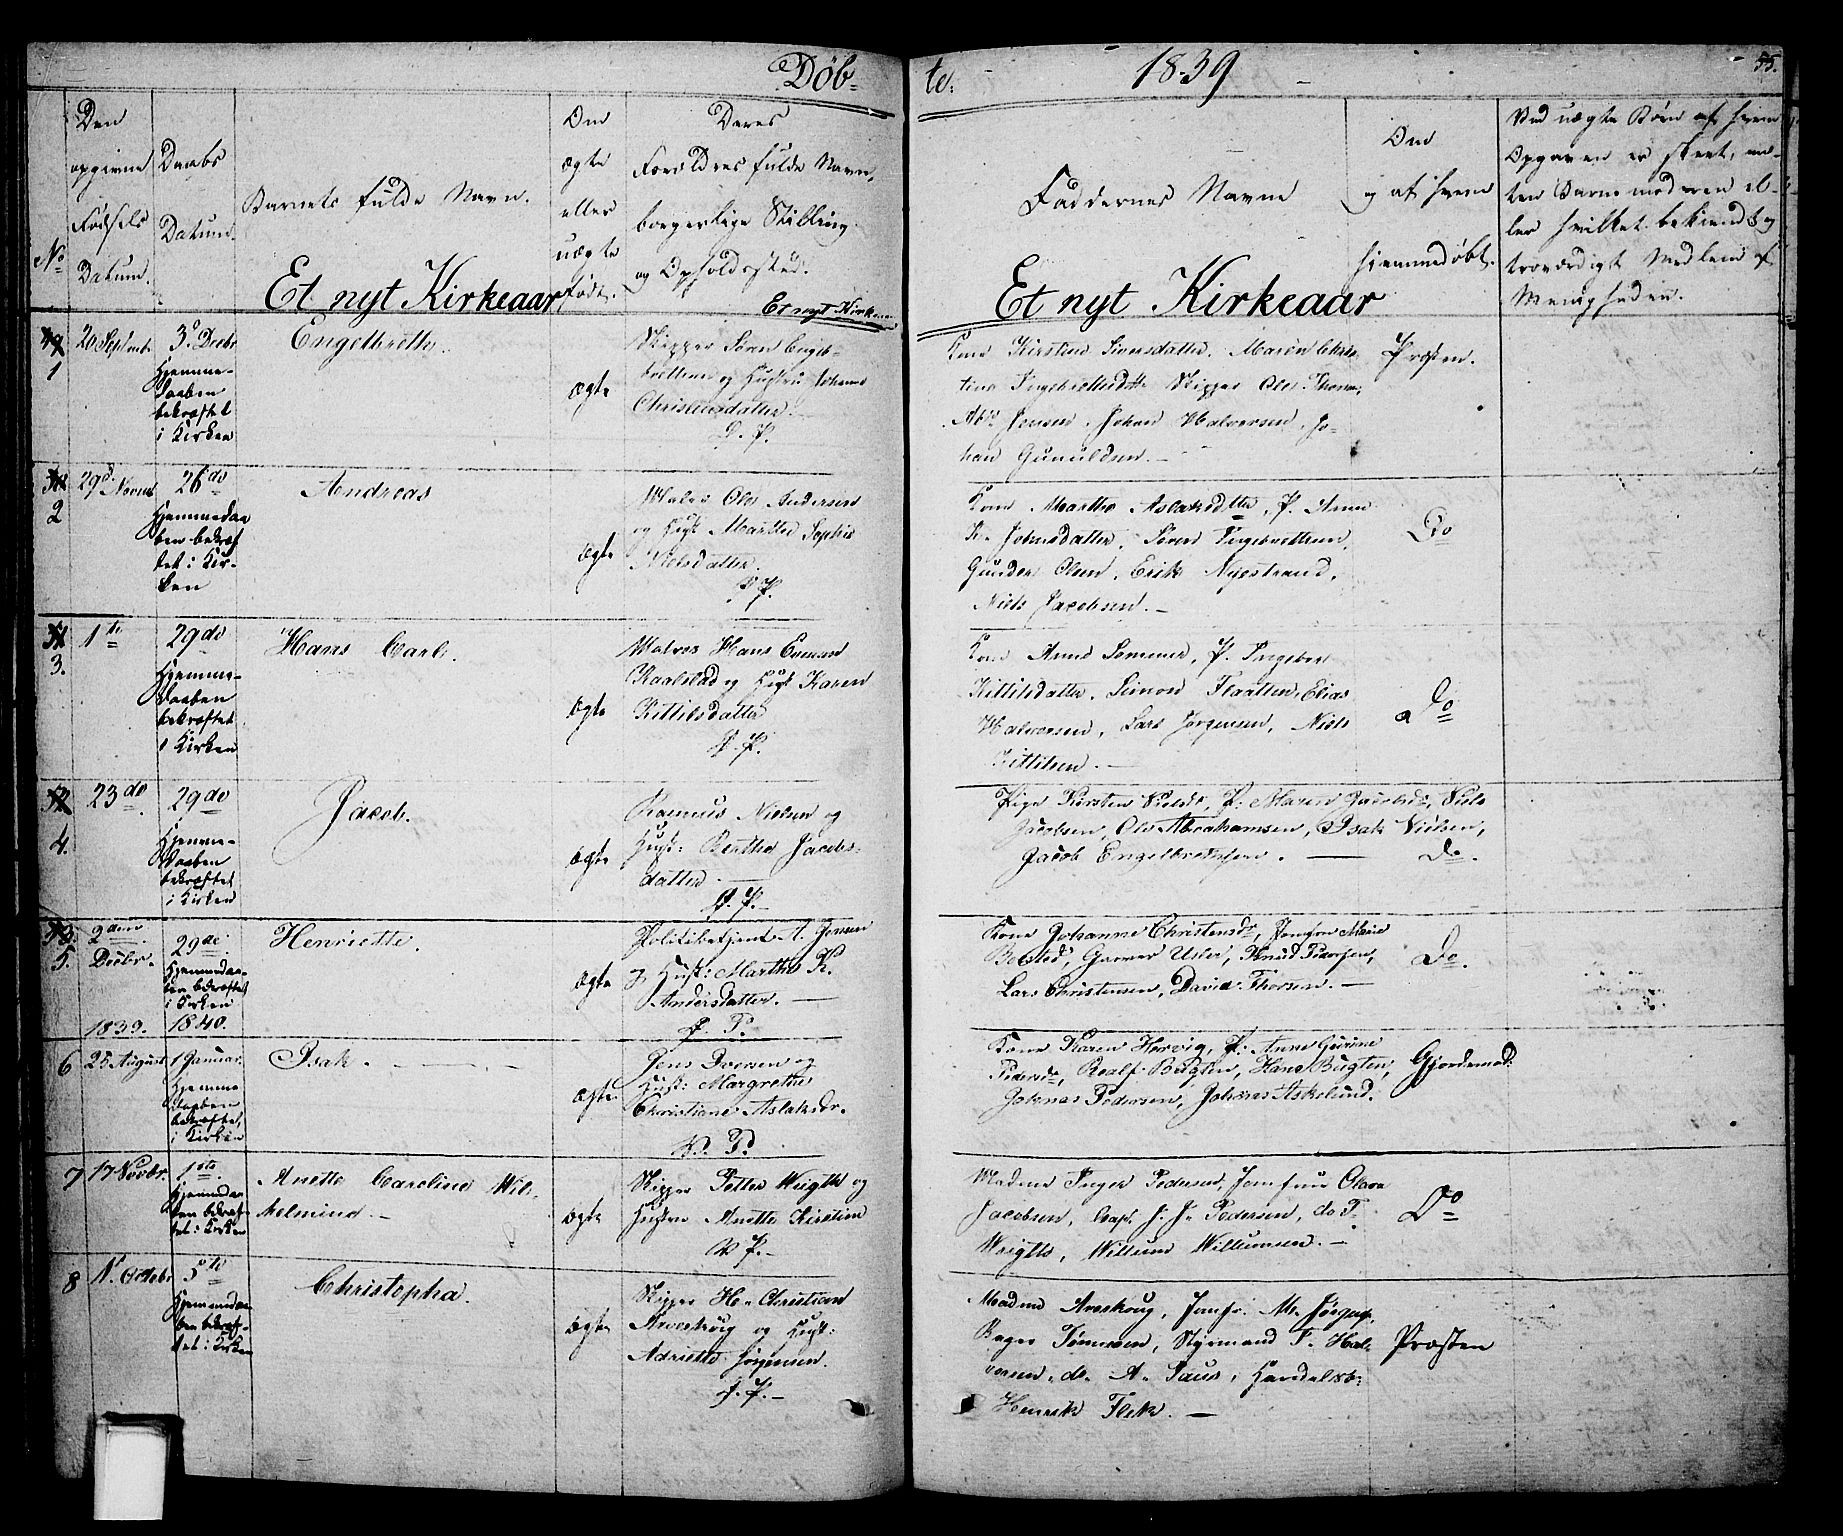 Døb-
te.
1839
55.
No
Den
opgivne
Fødsels
Datum.
Daabs
Datum.
Barnets fulde Navn.
Om
ægte
eller
uægte
født.
Deres
Forældres fulde Navn,
borgerlige Stilling
og Opholdssted.
Faddernes Navne
Om
og af hvem
hjemmedøbt.
Ved uægte Børn af hvem
Opgaven er skeet, en-
ten Barnemoderen el-
ler hvilket bekiendt og
troværdigt Medlem af
Menigheden.
Et nyt Kirkeaar
Et nyt
Et nyt Kirkeaar
1
20 Septemb
3 Decbr
Hjemme-
daaben
bekræftet
i Kirken
Engelbrette.
ægte
Skipper Søren Engel-
brettsen og Hustru Johanne
Christensdatter.
Kone Kirstine Siversdatter, Maren Chris
tine Skipper Ole Thom
Jensen, Johan Halvorsen, Jo-
han Gunuldsen.
Præsten.
2
29d Novemb
26 do
Hjemmedaa
ben bekræf
tet i Kir-
ken
Andreas
ægte
Matros Ole Andersen
og Hust Marthe Sophie
Nielsdatter.
Kone Marthe Aslaksdatter, P. Anne
K. Johnsdatter, Søren Ingebrettsen,
Gunder Olsen, Erik Nyestrand,
Niels Jacobsen.
Do
3.
1te
29 do
Hjemme-
daaben
bekræftet
i Kirken
Hans Carl.
ægte
Matros Hans
og Hust Karen
Kittilsdatter
Kone Anne P. Ingebor
Kittilsdatter, Simon Flaatten, Elias
Halvorsen, Lars Jørgensen, Niels
Kittilsen.
Do
4.
23 do
29 do
Hjemme-
daaben
bekræftet
i Kirken
Jacob.
ægte
Rasmus Nielsen og
Hust: Berthe Jacobs-
datter.
Pige Kirsten P: Maren Jacobsd, Niels
Jacobsen, Ole Abrahamsen, Isak Nielsen,
Jacob Engelbretsen.
Do.
5.
2den
Decbr.
29 de
Hjemmedaa-
ben bekræftet
i Kirken
Henriette.
ægte
Politibetjent A. Jensen
og Hust: Marthe K.
Andersdatter.
Kone Johanne Christensdr, Jomfru Marie
Bolsted, Garver Usler, Knud
Lars Christensen, David Thorsen.
Do.
1839.
1840.
6
25 August
1 Januar.
Hjemme
daaben
bekræftet,
i Kirken
Isak.
ægte
Jens Iversen og
Hust: Margrethe
Christiane Aslaksdr.
Kone Karen Hervig, P: Anne Gurine
Pedersdr, Realf Bugten, Hans Bugten,
Johnas Pedersen, Johannes Askelund.
Gjordemod:
7
17 Novbr.
1ste
Hjemmedaa
ben bekræf
tet i Kirken
Anette Caroline Wil-
helmine.
ægte
Skipper Petter Wrigth og
Hustru Anette Kirstine
Madme Inger Pedersen, Jomfrue Olava
Jacobsen, Capt. J. J. Pedersen, do T.
Wrigth, Willum Willumsen.
Do
8
1 Octobr
5te
Hjemmedaa
ben bekræf-
tet i Kirken
Christopha.
ægte
Skipper H. Christian
Averskoug og Hust:
Adriette Jørgensen.
Madme Averskoug, Jomfr. M. Jørgns,
Bager Tønnesen, Styrmand T. Hal-
vorsen, do. A. Saus, Handelsb.
Henrik Flek.
Præsten